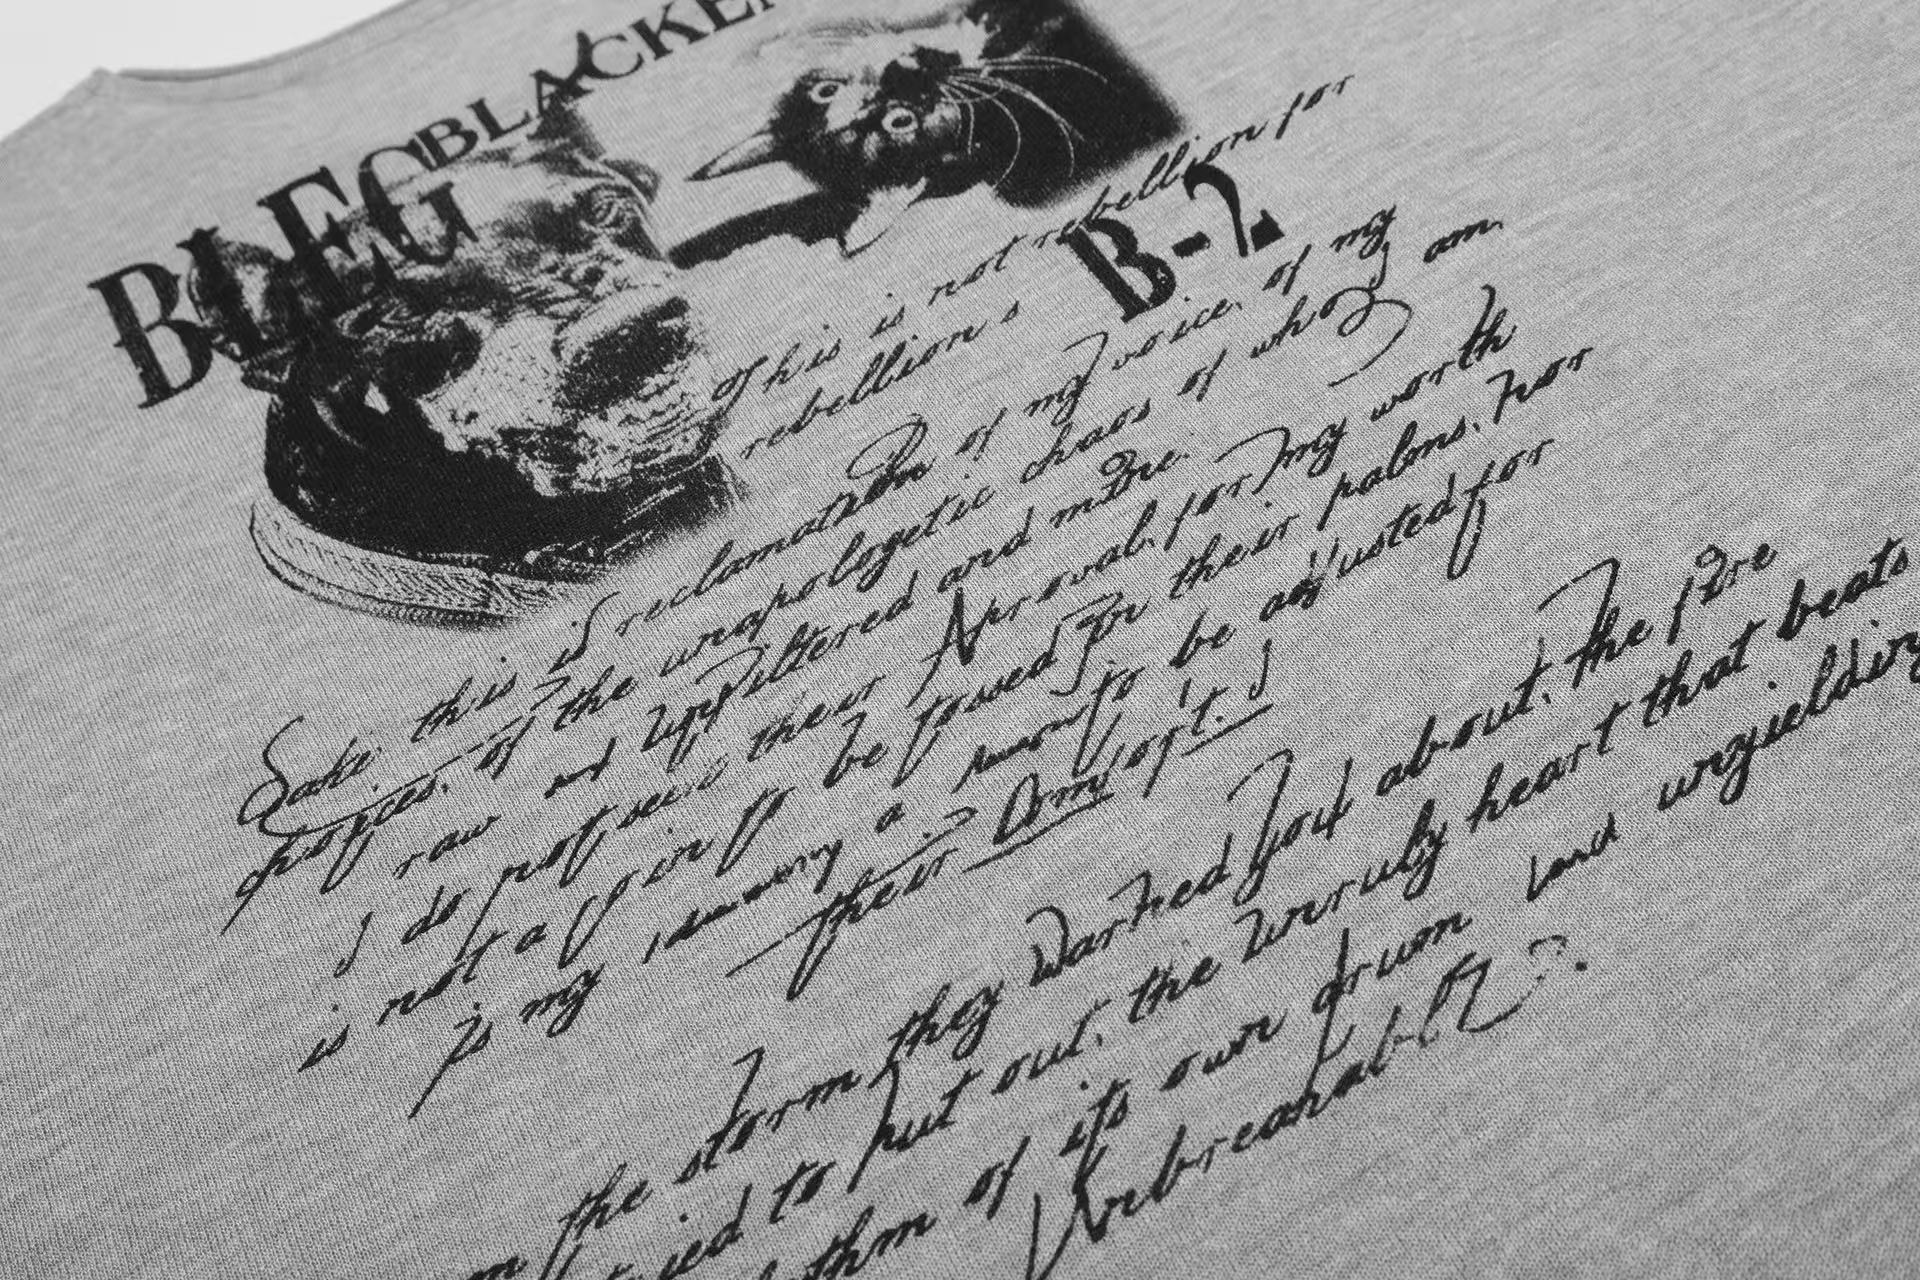 BLACKE
BLEG
B-2
This is not rebellion for
rebellion's
Sake. this is reclamation of my voice. of my
choices. of the unapologetic chaos of who I am.
raw and Unfiltered and mine.
I do not seek their Aproval. for my worth
is not a coin to be tossed in their palms. nor
is my to be adjusted for
their Comfort.
the storm they warned you about. the fire
tried to put out. the unruly heart that beats
of its own drum and unyielding
Unbreakable.